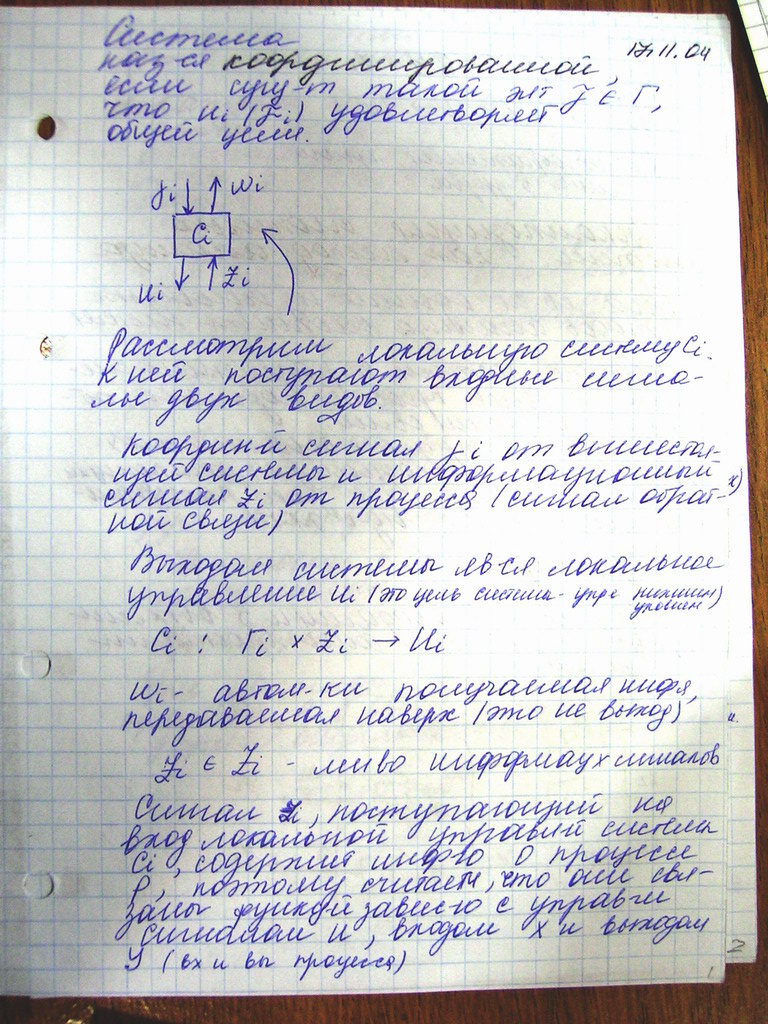 17.11.04
Система
наз-ся координированной,
если сущ-т такой эл-т γ ∈ Г,
что ui (γi) удовлетворяет
общей цели.
γi wi
Ci
ui zi
Рассмотрим локальную систему Ci.
К ней поступают входные сигна-
лы двух видов.
Координ-й сигнал γi от вышестоя-
щей системы и информационный
сигнал zi от процесса (сигнал обрат-
ной связи)
Выходом системы яв-ся локальное
управление ui (это цель система- упр-е нижним
уровнем)
Ci : Гi × Zi → Ui
wi - автом-ки получаемая инф-я,
передаваемая наверх (это не выход)
zi ∈ Zi - мн-во информац-х сигналов
Сигнал zi, поступающий на
вход локальной управл-й системы
Ci, содержит инф-ю о процессе
P, поэтому считаем, что они свя-
заны функц-й завис-ю с управл-и
сигналам u, входом x и выходом
y (вх и вы процесса)
1
2